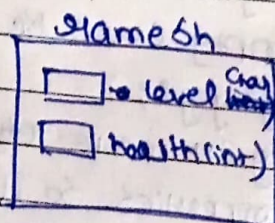 Ramesh
level (char)
health (int)